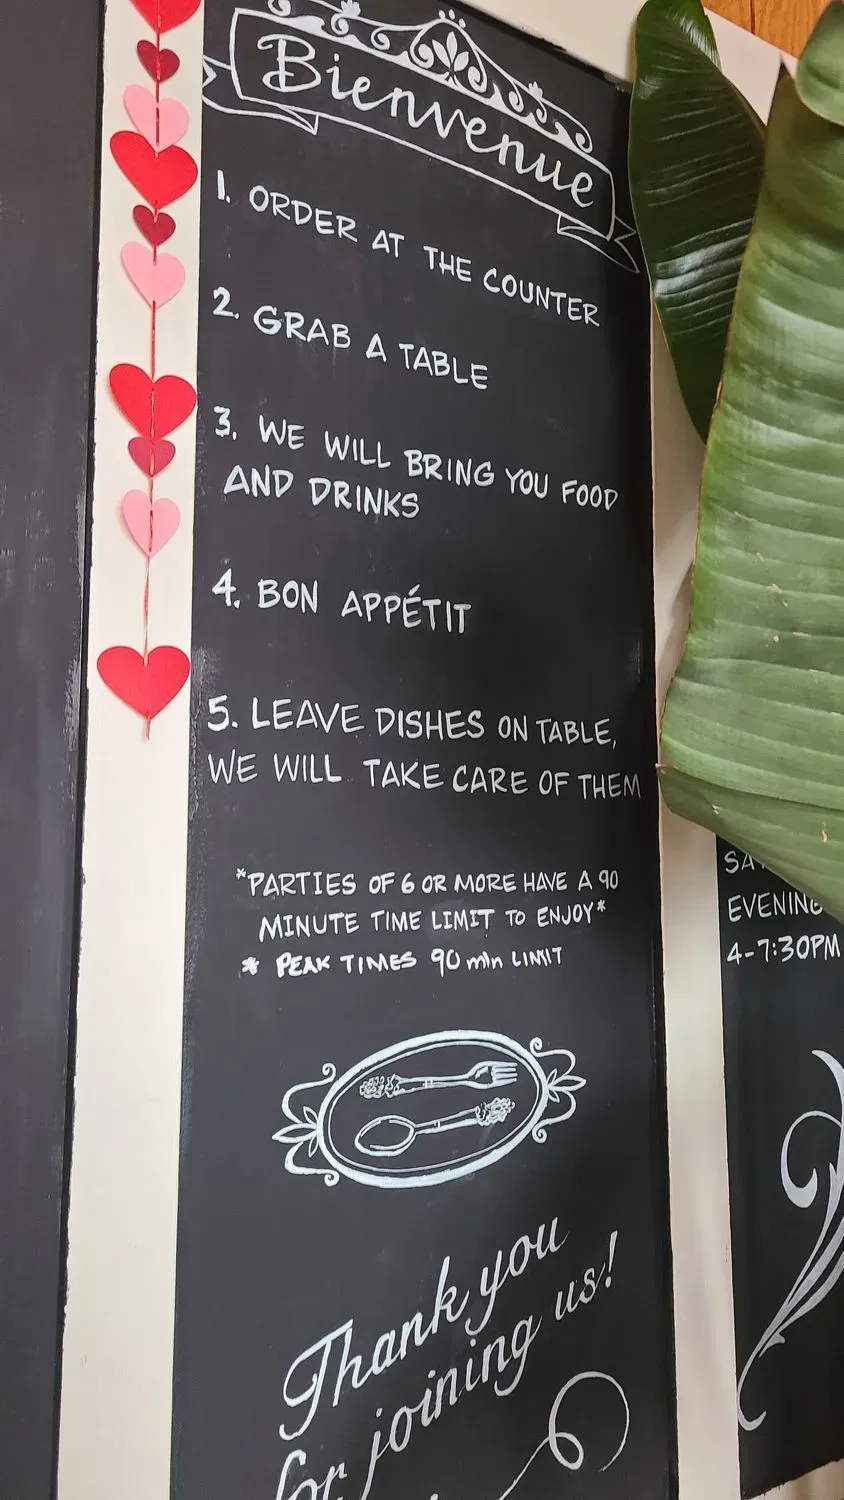 Bienvenue
1. ORDER AT THE COUNTER
2. GRAB A TABLE
3. WE WILL BRING YOU FOOD
AND DRINKS
4. BON APPÉTIT
5. LEAVE DISHES ON TABLE,
WE WILL TAKE CARE OF THEM
*PARTIES OF 6 OR MORE HAVE A 90
MINUTE TIME LIMIT TO ENJOY*
* PEAK TIMES 90 min LIMIT
Thank you
for joining us!
EVENING
4-7:30PM